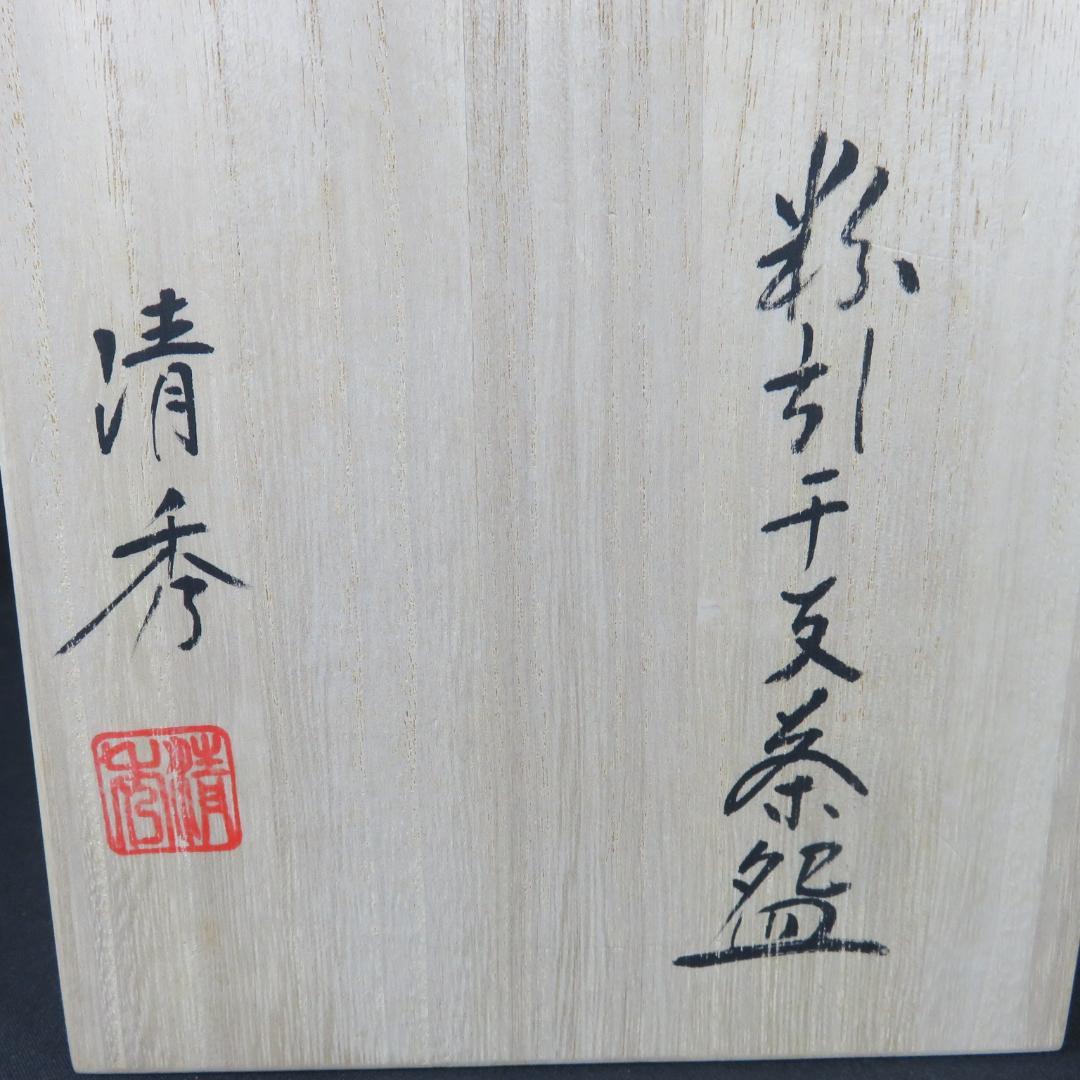 粉引干支茶盌
清秀
清秀